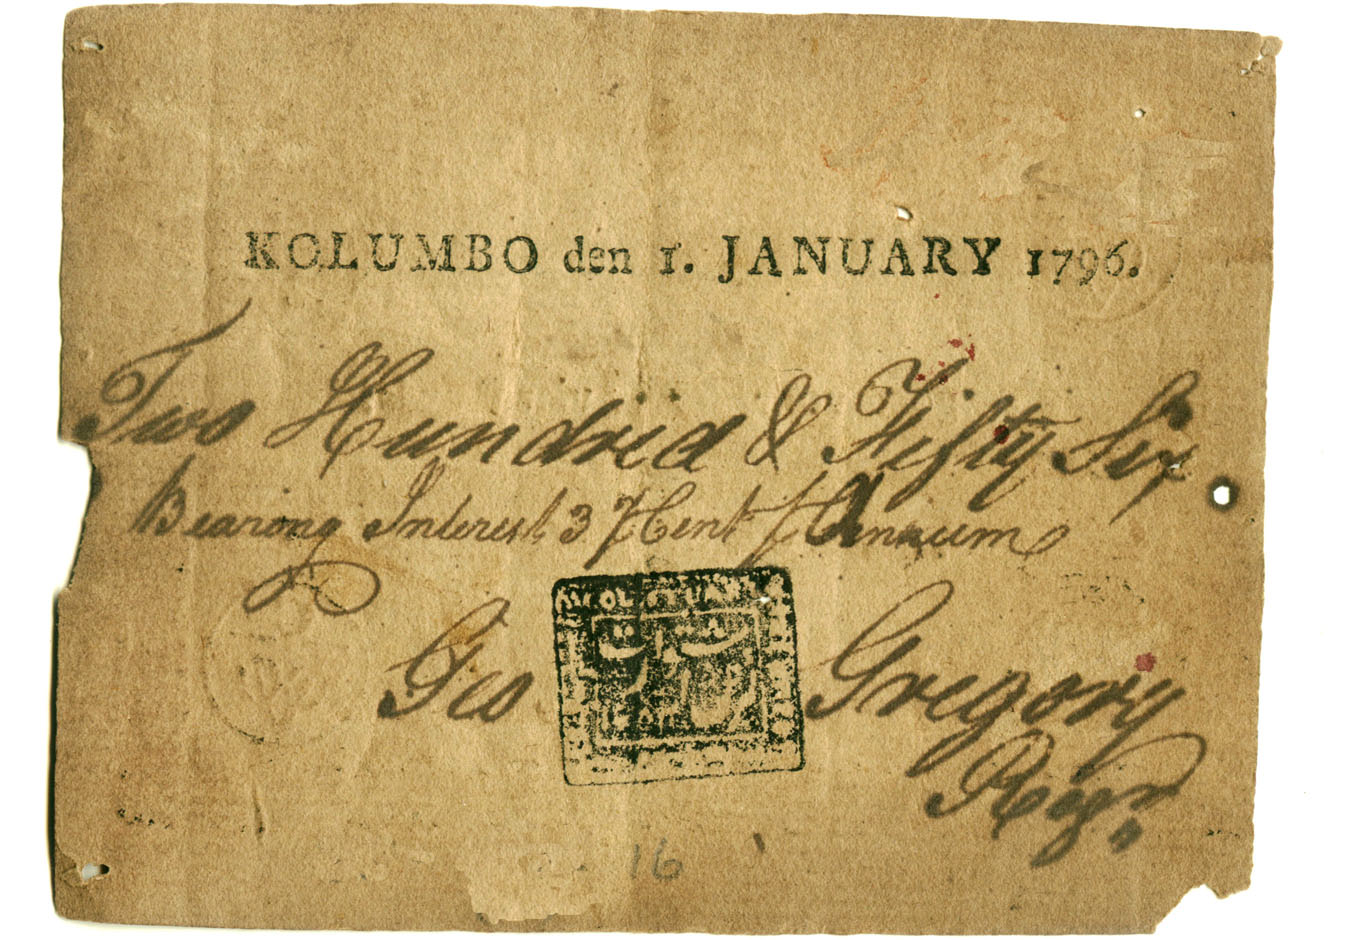 KOLUMBO den 1. JANUARY 1796.
Two Hundred & Fifty Six
Bearing Interest 3 ℔ Cent ℔ Annum
Geo Gregory
Regr
16